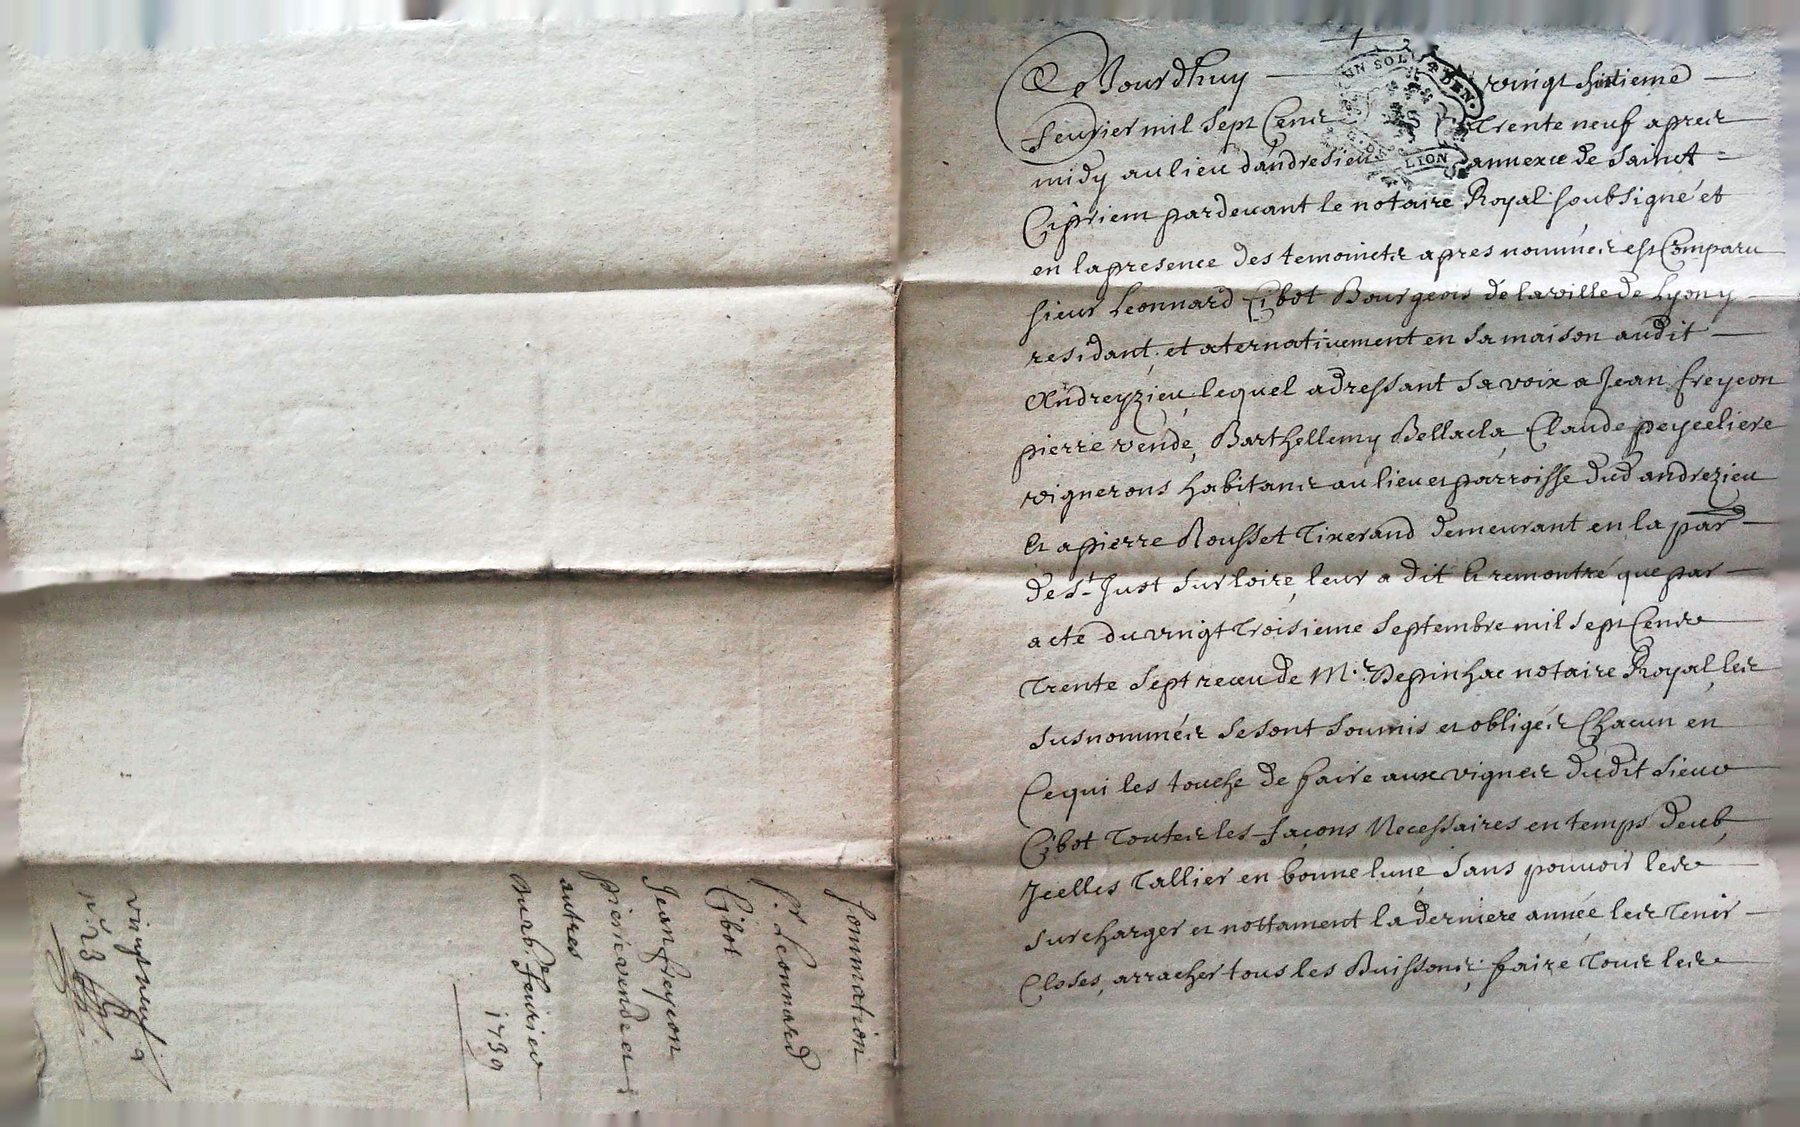 Ce Jourdhuy vingt huitieme
feurier mil sept Cents Trente neuf apres
midy au lieu dandresieu annexe de Sainct
Cipriem pardeuant le notaire Royal soubsigné et
en la presence des temoincts apres nommes est Comparu
sieur Leonnard Cibot Bourgeois de la ville de Lyon y
residant et aternatiuement en sa maison audit
Andreyzieu, lequel adressant sa voix a Jean freycon
pierre vende, Barthellemy Bellacla, Claude peyceliere
vignerons habitants au lieu et parroisse dud andrezieu
et a pierre Rousset Tixerand demeurant en la par
de St Just sur loire, leur a dit et remontré que par
acte du vingt Troisieme Septembre mil sept Cents
Trente Sept receu de Mr Depinhac notaire Royal les
susnommés se sont soumis et obligés Chacun en
Ce qui les touche de faire aux vignes dudit Sieur
Cibot Toutes les façons Necessaires en temps deub,
Jcelles Tallier en bonne lune sans pouvoir les
surcharger et nottament la derniere année les Tenir
Closes, arracher tous les Buissons, faire Tous les
UN SOL 4 DEN.
LION
Sommation
Sr. Leonnard
Cibot
Jean freycon
pierre vende et
autres
Du 28e feurier
1739
vingt neuf